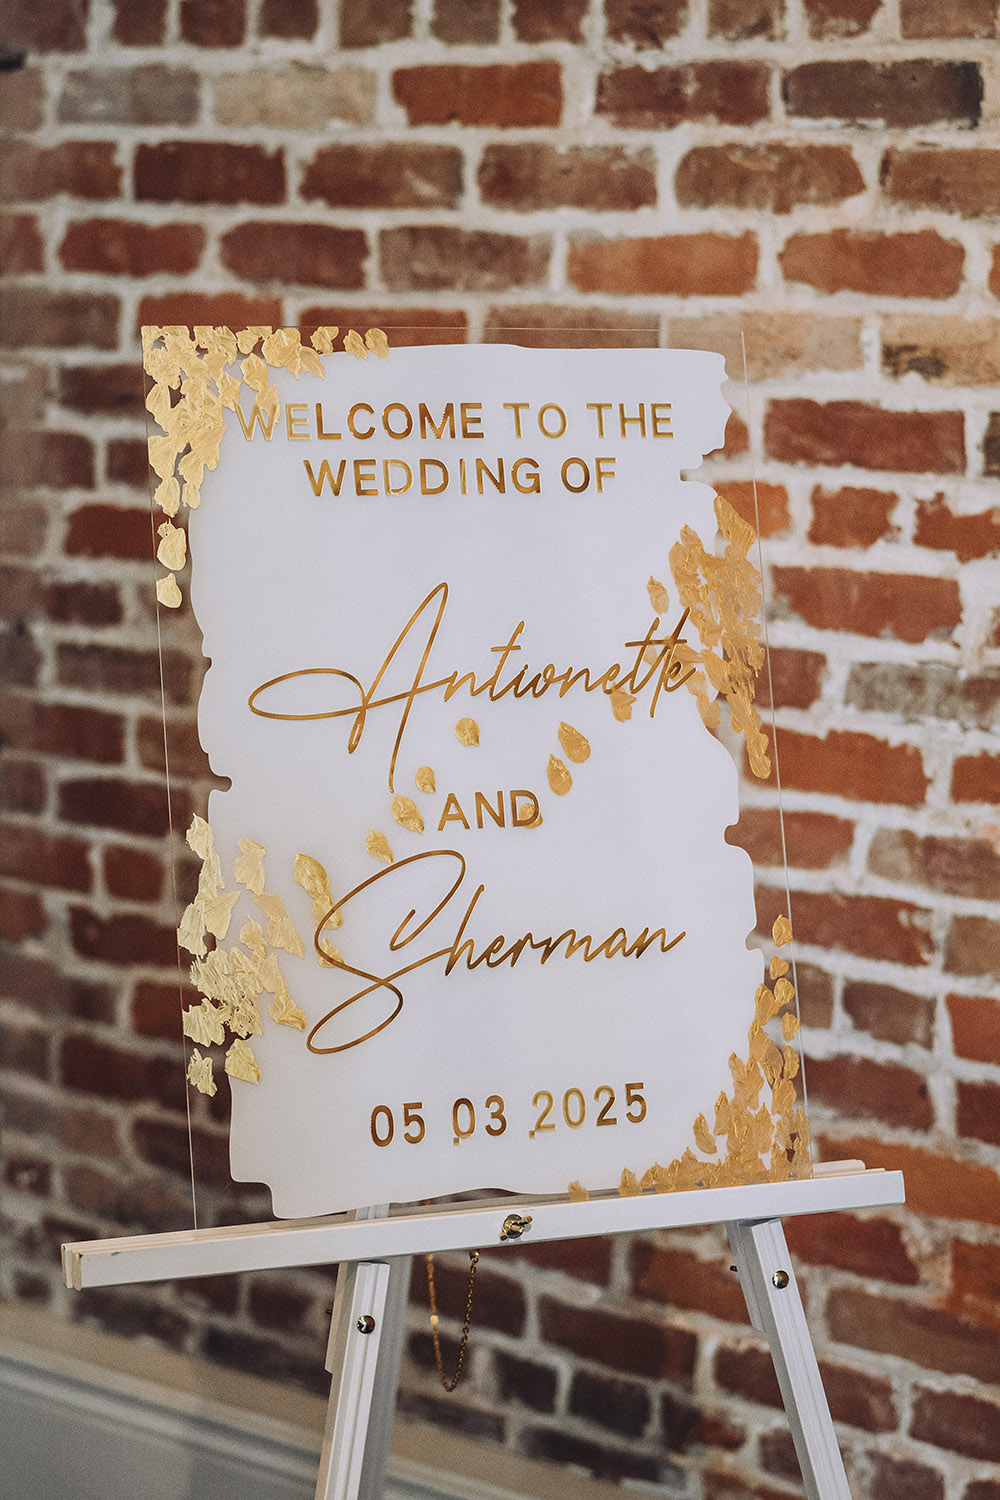 WELCOME TO THE
WEDDING OF
Antionette
AND
Sherman
05.03.2025